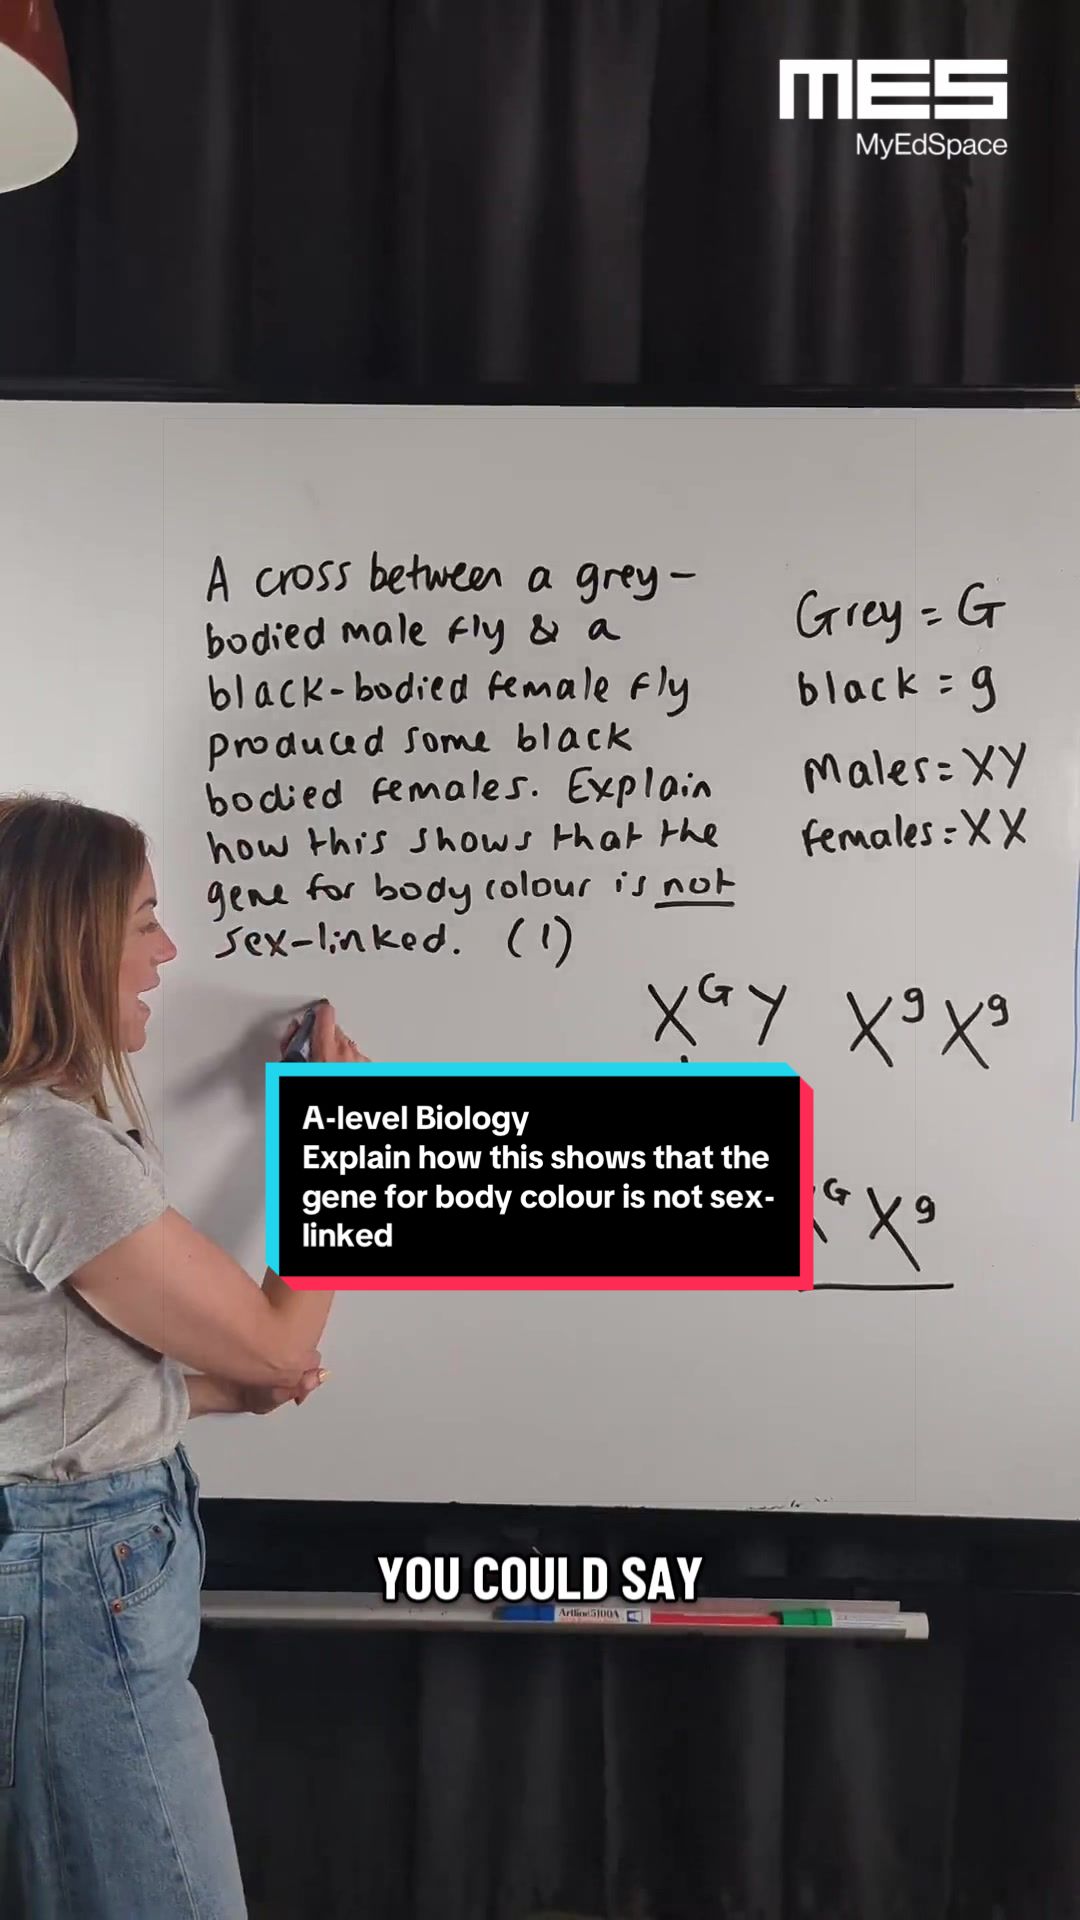 MES
MyEdSpace
A cross between a grey-
bodied male fly & a
black-bodied female fly
produced some black
bodied females. Explain
how this shows that the
gene for body colour is not
sex-linked. (1)
Grey = G
black = g
Males = XY
females = XX
X^G Y X^g X^g
A-level Biology
Explain how this shows that the
gene for body colour is not sex-
linked
G X^g
YOU COULD SAY
Artline 5100A